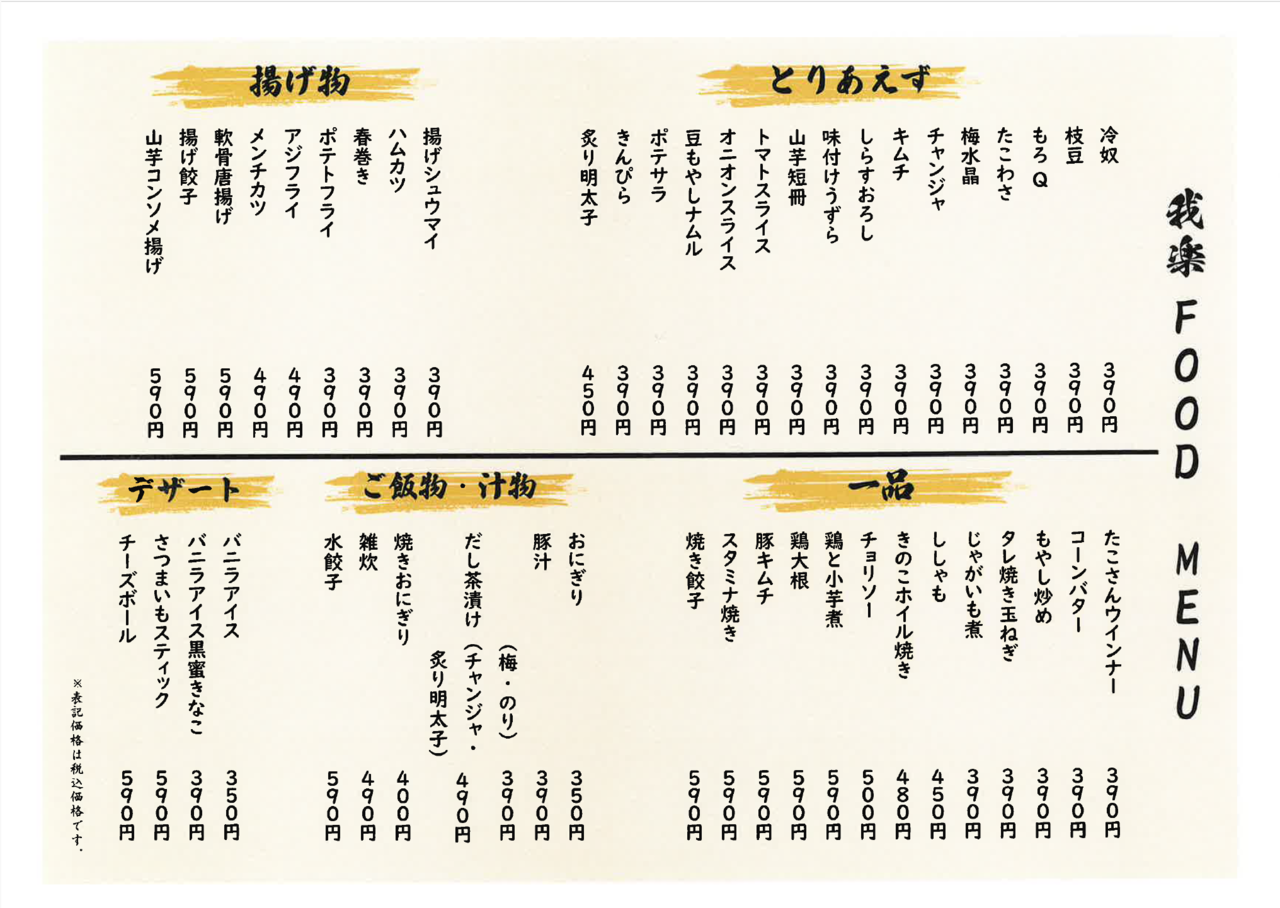 我楽 FOOD MENU
とりあえず
冷奴 390円
枝豆 390円
もろQ 390円
たこわさ 390円
梅水晶 390円
チャンジャ 390円
キムチ 390円
しらすおろし 390円
味付けうずら 390円
山芋短冊 390円
トマトスライス 390円
オニオンスライス 390円
豆もやしナムル 390円
ポテサラ 390円
きんぴら 390円
炙り明太子 450円
揚げ物
揚げシュウマイ 390円
ハムカツ 390円
春巻き 390円
ポテトフライ 390円
アジフライ 490円
メンチカツ 490円
軟骨唐揚げ 590円
揚げ餃子 590円
山芋コンソメ揚げ 590円
一品
たこさんウインナー 390円
コーンバター 390円
もやし炒め 390円
タレ焼き玉ねぎ 390円
じゃがいも煮 390円
ししゃも 450円
きのこホイル焼き 480円
チョリソー 500円
鶏と小芋煮 590円
鶏大根 590円
豚キムチ 590円
スタミナ焼き 590円
焼き餃子 590円
ご飯物・汁物
おにぎり 350円
豚汁 390円
(梅・のり) 390円
だし茶漬け (チャンジャ・ 490円
炙り明太子)
焼きおにぎり 400円
雑炊 490円
水餃子 590円
デザート
バニラアイス 350円
バニラアイス黒蜜きなこ 390円
さつまいもスティック 590円
チーズボール 590円
※表記価格は税込価格です.